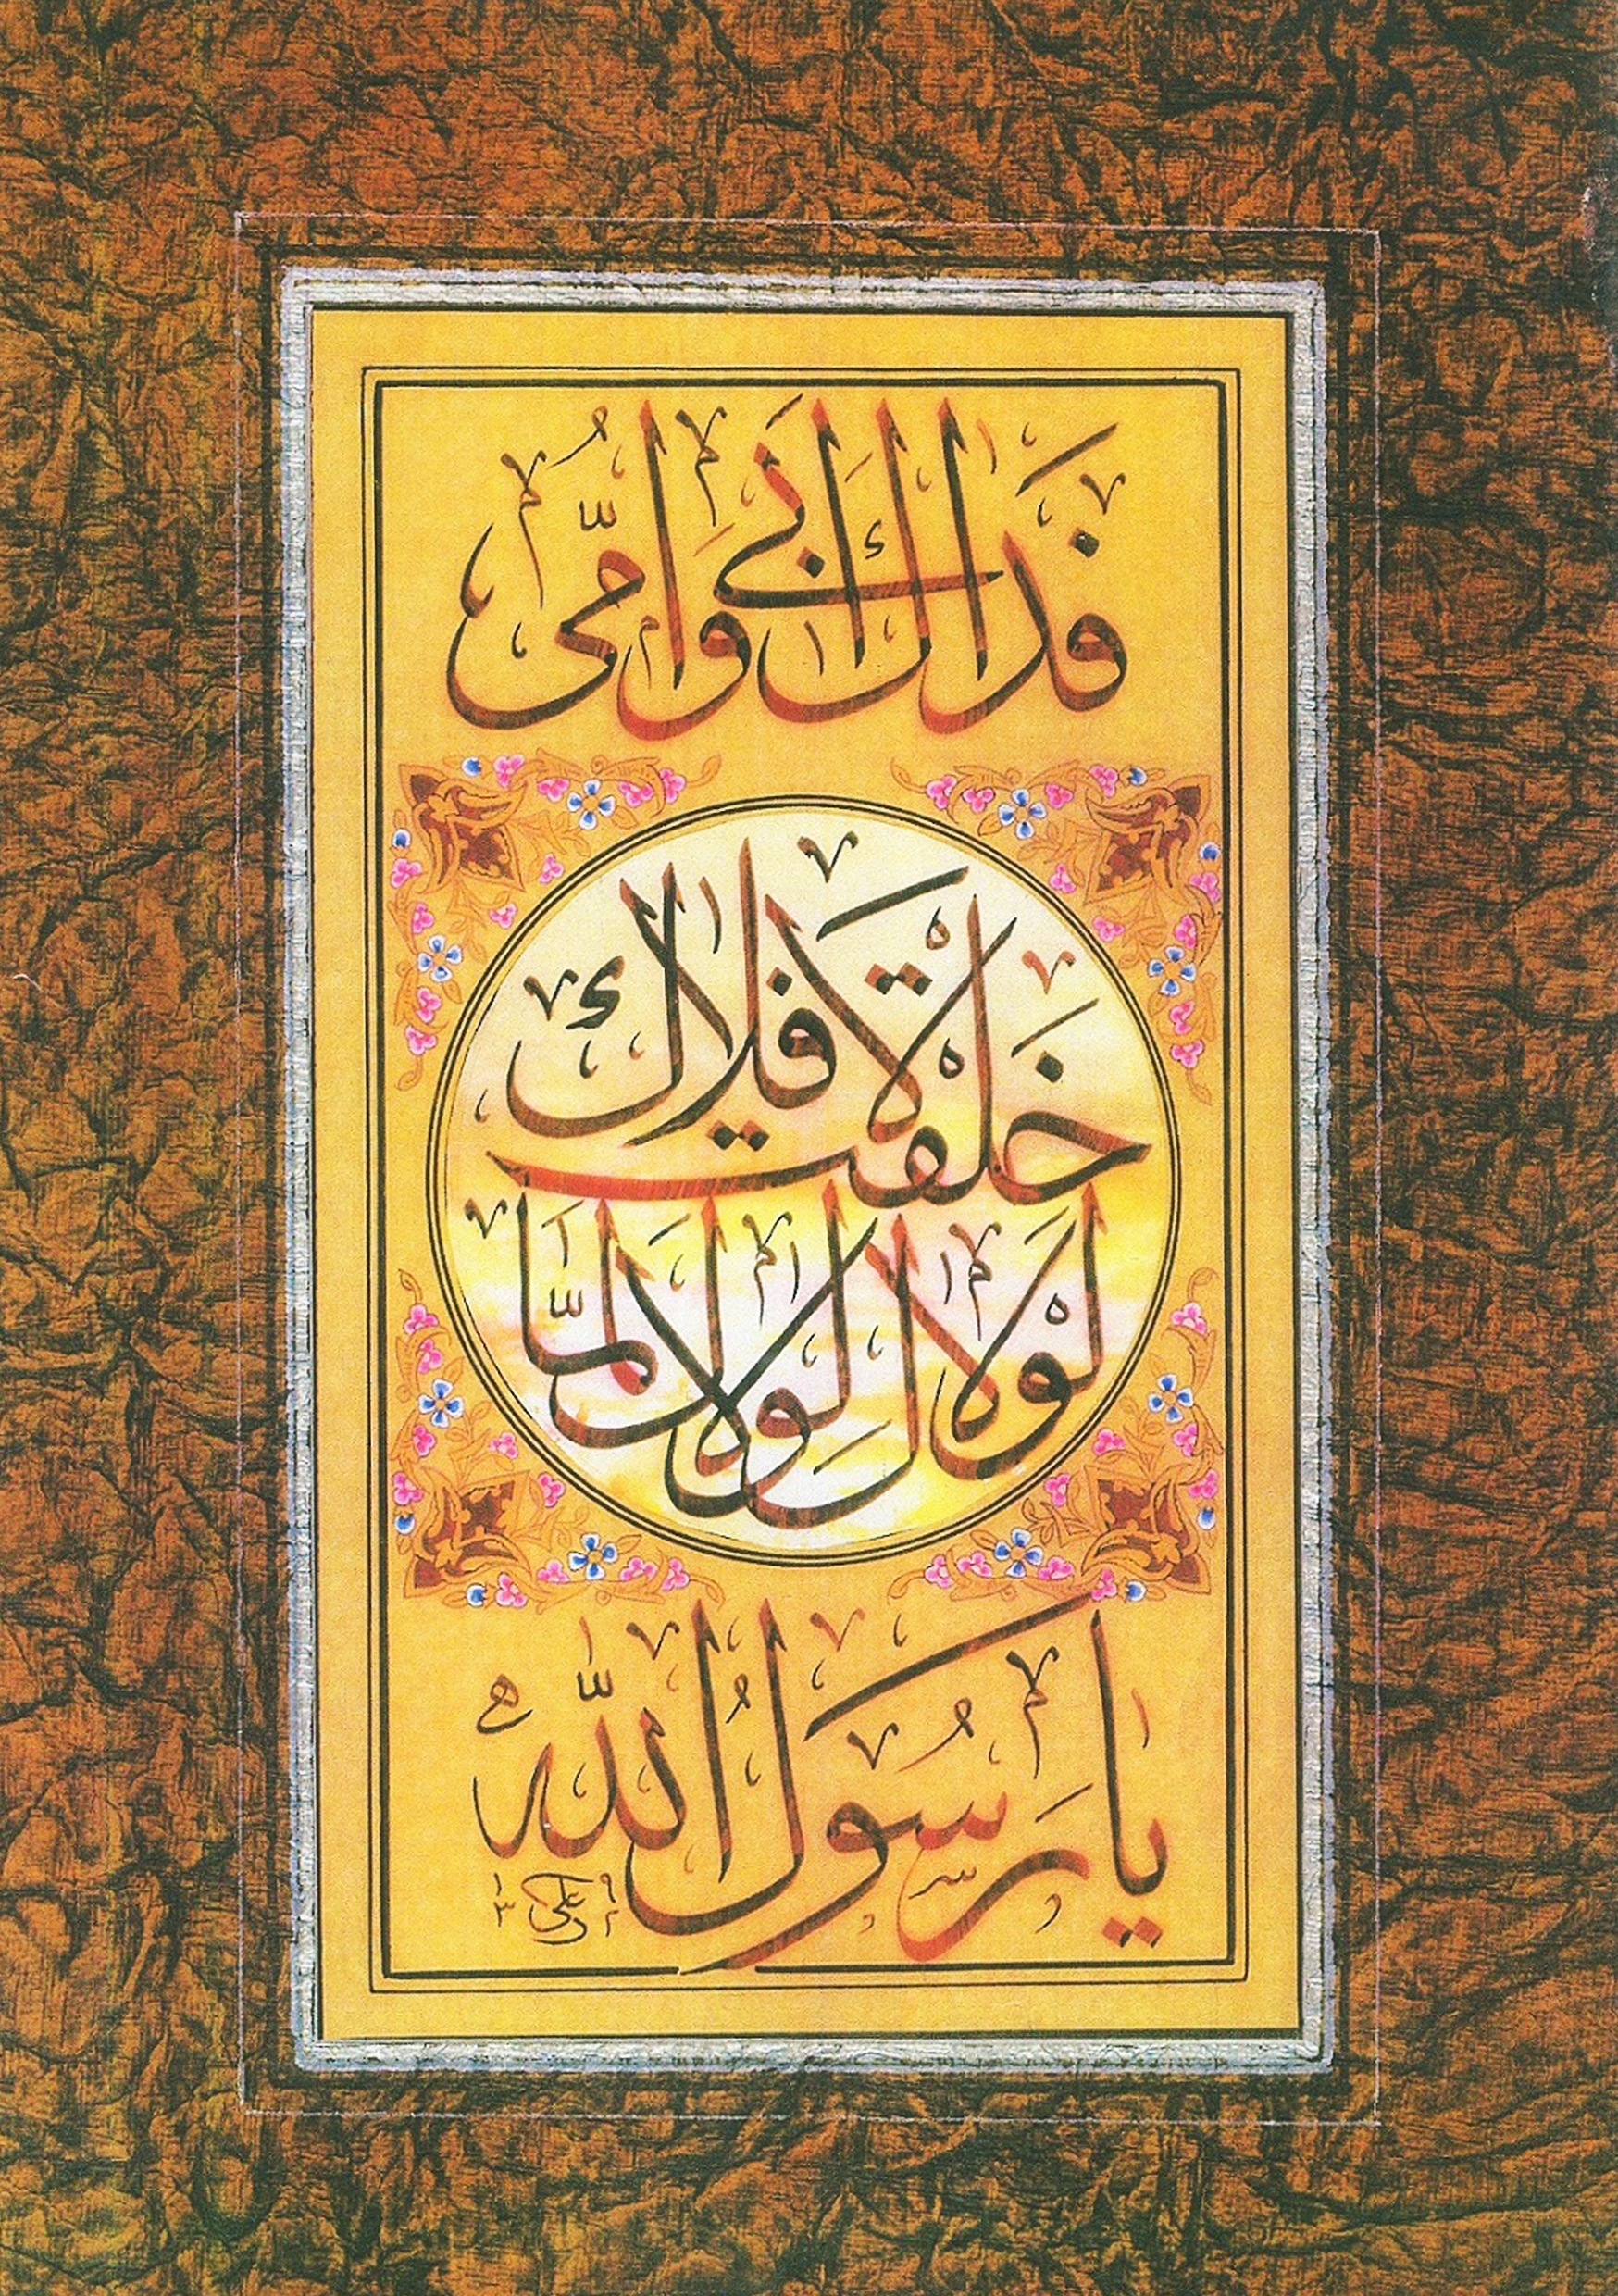 فداك ابی وامّی
لولاك لولاك لمّا
خلقت الافلاك
يا رَسُول اللّه